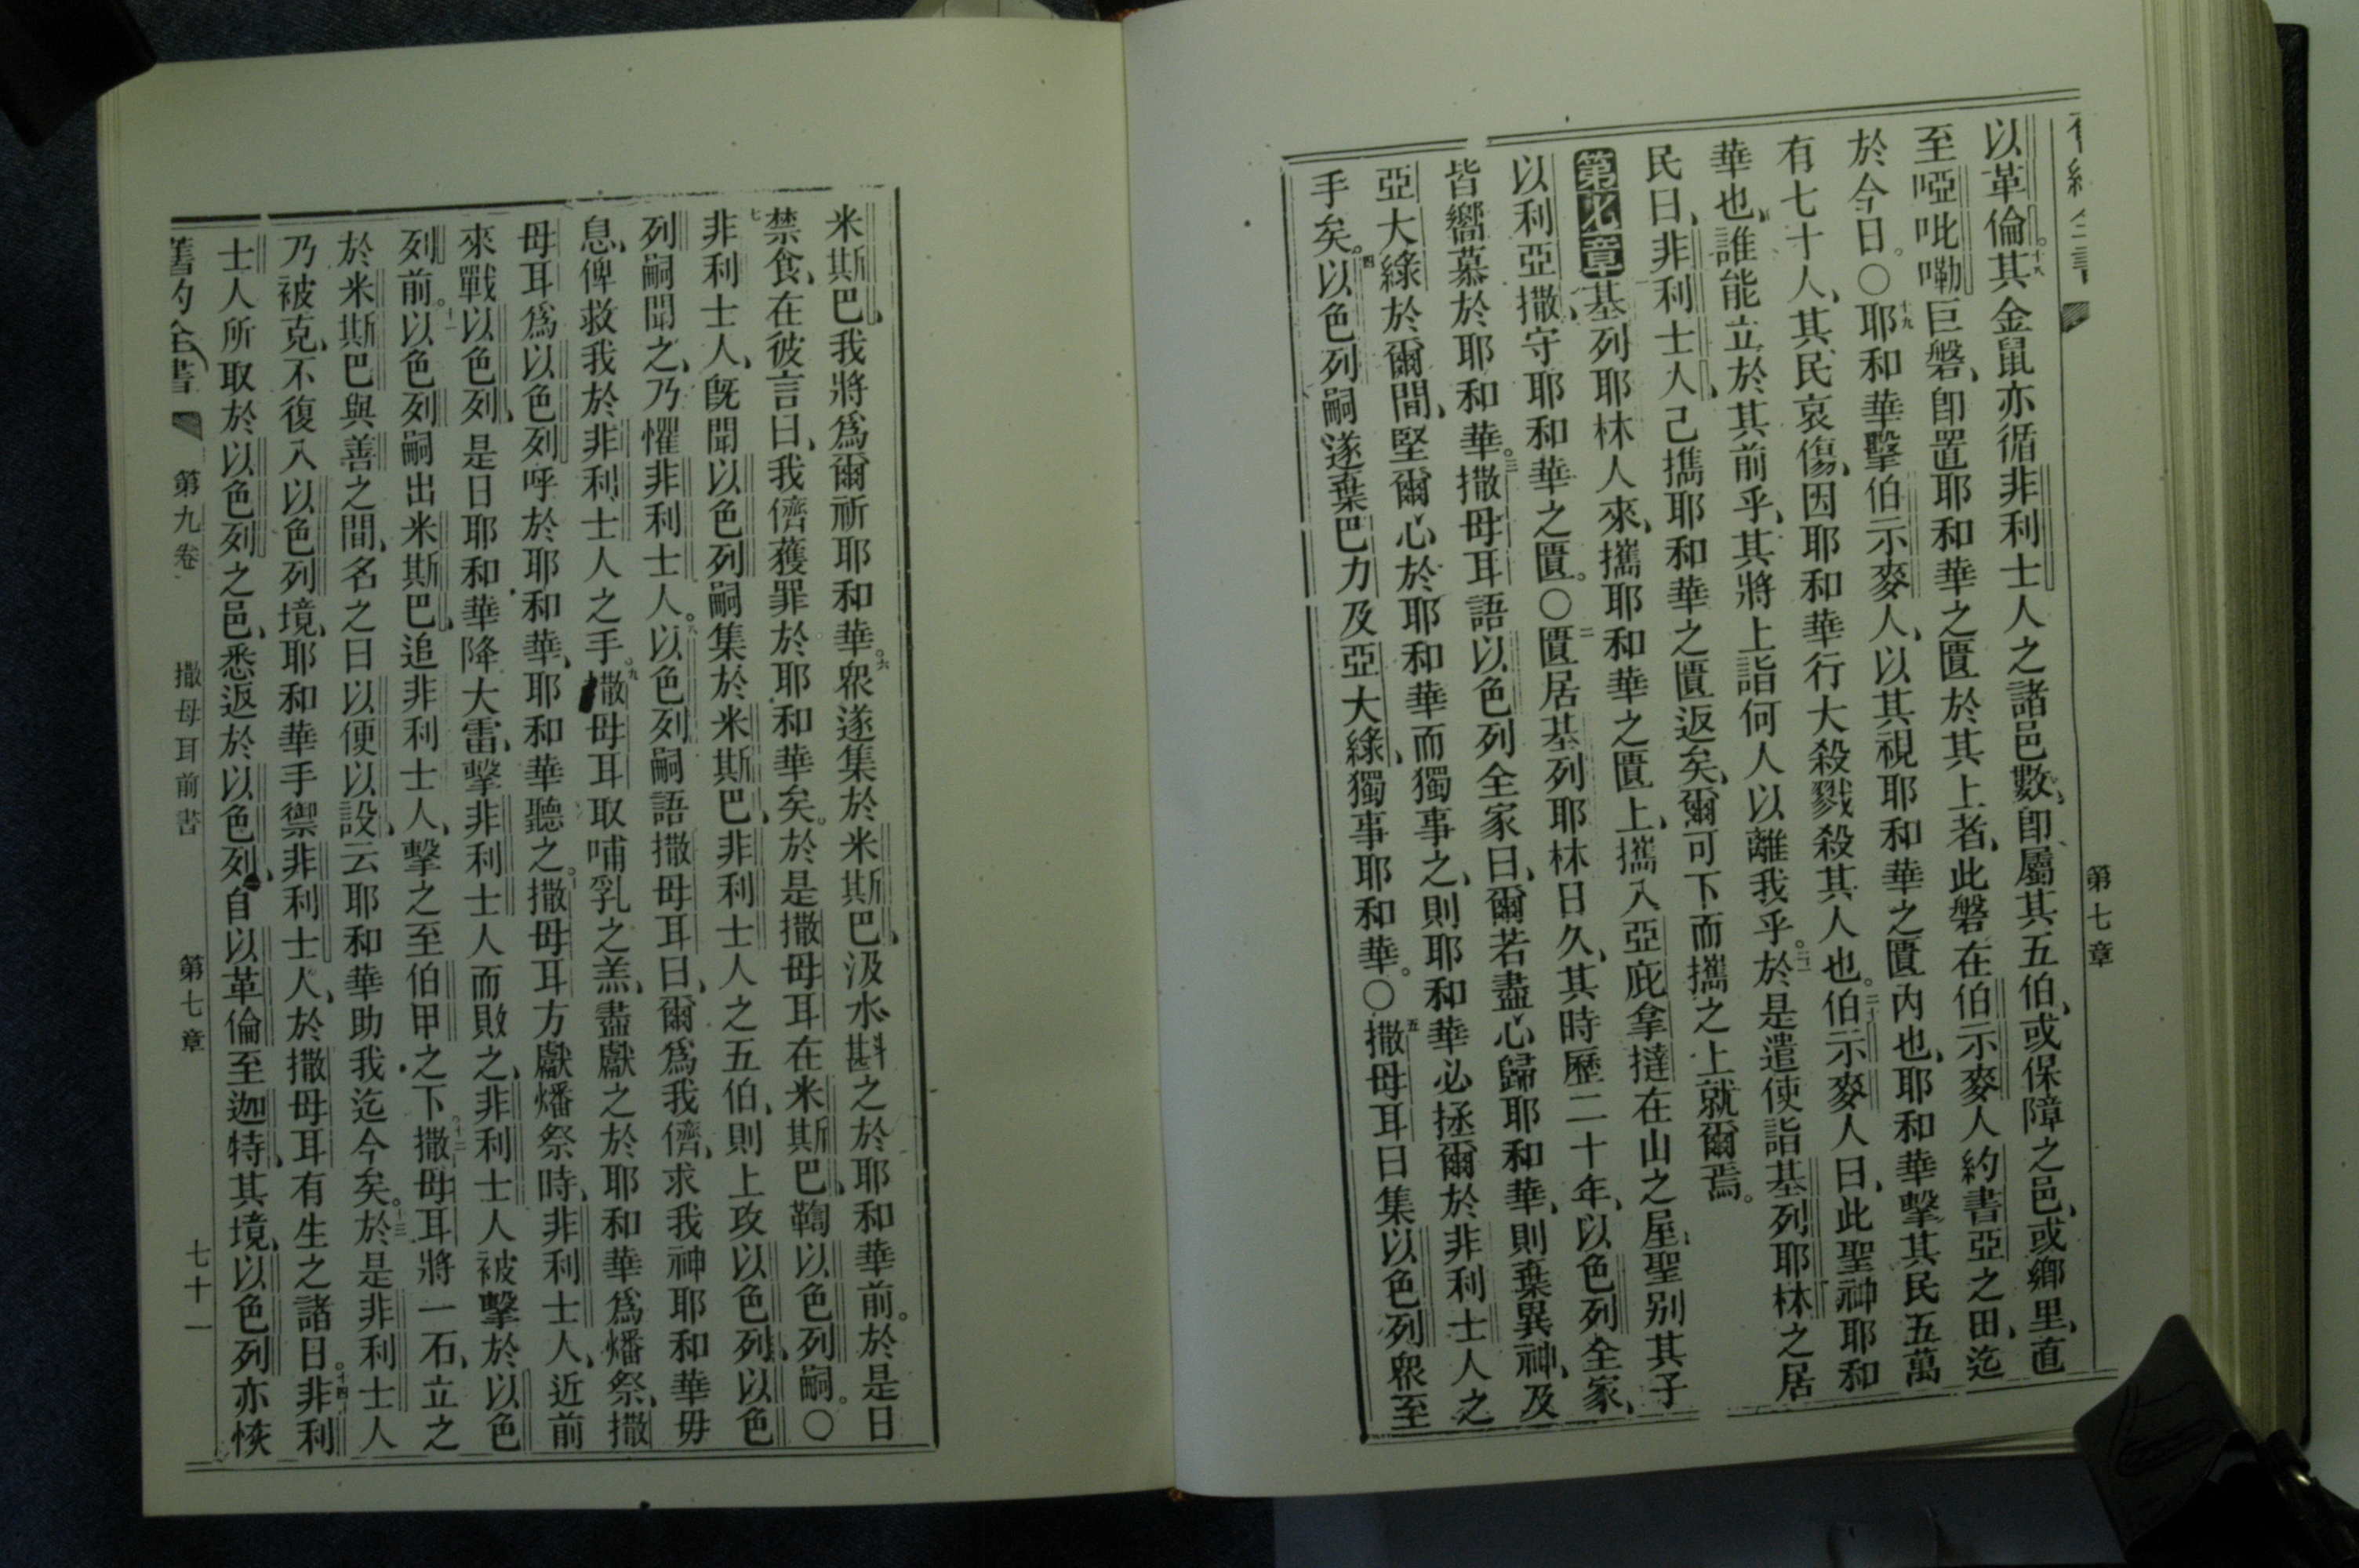 第七章
以革倫。十八其金鼠亦循非利士人之諸邑數、卽屬其五伯、或保障之邑、或鄉里、直
至啞吡嘞巨磐、卽置耶和華之匱於其上者、此磐在伯示麥人約書亞之田、迄
於今日。○十九耶和華擊伯示麥人、以其視耶和華之匱內也、耶和華擊其民五萬
有七十人、其民哀傷、因耶和華行大殺戮殺其人也。二十伯示麥人曰、此聖神耶和
華也、誰能立於其前乎、其將上詣何人以離我乎。二一於是遣使詣基列耶林之居
民曰、非利士人、己擕耶和華之匱返矣、爾可下而攜之上就爾焉。
第七章基列耶林人來、攜耶和華之匱上、攜入亞庇拿撻在山之屋、聖别其子
以利亞撒、守耶和華之匱。○二匱居基列耶林日久、其時歷二十年、以色列全家、
皆嚮慕於耶和華。三撒母耳語以色列全家曰、爾若盡心歸耶和華、則棄異神、及
亞大綠於爾間、堅爾心於耶和華而獨事之、則耶和華必拯爾於非利士人之
手矣。四以色列嗣遂棄巴力及亞大綠、獨事耶和華。○五撒母耳曰集以色列衆至
米斯巴、我將爲爾祈耶和華。六衆遂集於米斯巴、汲水斟之於耶和華前。於是日
禁食、在彼言曰、我儕獲罪於耶和華矣。於是撒母耳在米斯巴、鞫以色列嗣。○
七非利士人、旣聞以色列嗣集於米斯巴、非利士人之五伯、則上攻以色列、以色
列嗣聞之、乃懼非利士人。八以色列嗣語撒母耳曰、爾爲我儕、求我神耶和華毋
息、俾救我於非利士人之手。九撒母耳取哺乳之羔、盡獻之於耶和華爲燔祭、撒
母耳爲以色列呼於耶和華、耶和華聽之。十撒母耳方獻燔祭時、非利士人、近前
來戰以色列、是日耶和華降大雷、擊非利士人而敗之、非利士人被擊於以色
列前。十一以色列嗣出米斯巴、追非利士人、擊之至伯甲之下。十二撒母耳將一石、立之
於米斯巴與善之間、名之曰以便以設、云耶和華助我迄今矣。十三於是非利士人
乃被克、不復入以色列境、耶和華手禦非利士人、於撒母耳有生之諸日。十四非利
士人所取於以色列之邑、悉返於以色列、自以革倫至迦特、其境、以色列亦恢
舊約全書 第九卷 撒母耳前書 第七章 七十一